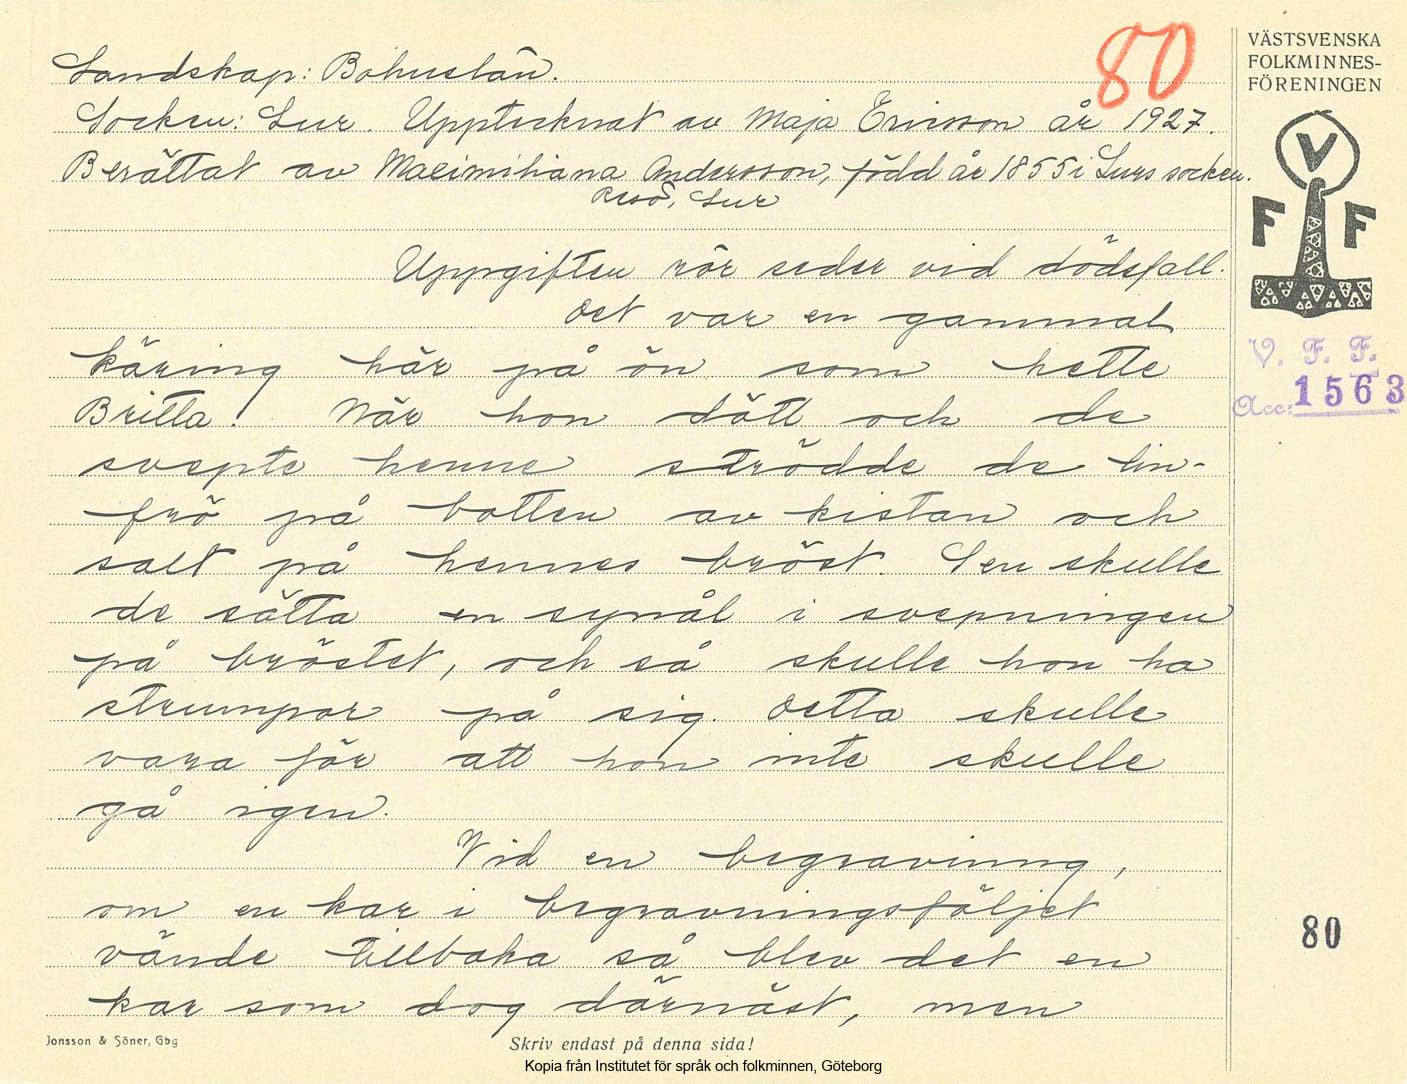 80
VÄSTSVENSKA
FOLKMINNES-
FÖRENINGEN
Landskap: Bohuslän.
Socken: Lur. Upptecknat av Maja Ericsson år 1927.
Berättat av Maximiliana Andersson, född år 1855 i Lurs socken.
Resö, Lur
V
F F
Uppgiften rör seder vid dödsfall.
Det var en gammal
käring här på ön som hette
Britta. När hon dött och de
svepte henne strödde de lin-
frö på botten av kistan och
salt på hennes bröst. Sen skulle
de sätta en synål i svepningen
på bröstet, och så skulle hon ha
strumpor på sig. Detta skulle
vara för att hon inte skulle
gå igen.
Vid en begravning,
om en kar i begravningsföljet
vände tillbaka så blev det en
kar som dog därnäst, men
V. F. F.
Acc: 1563
80
Jonsson & Söner, Gbg
Skriv endast på denna sida!
Kopia från Institutet för språk och folkminnen, Göteborg